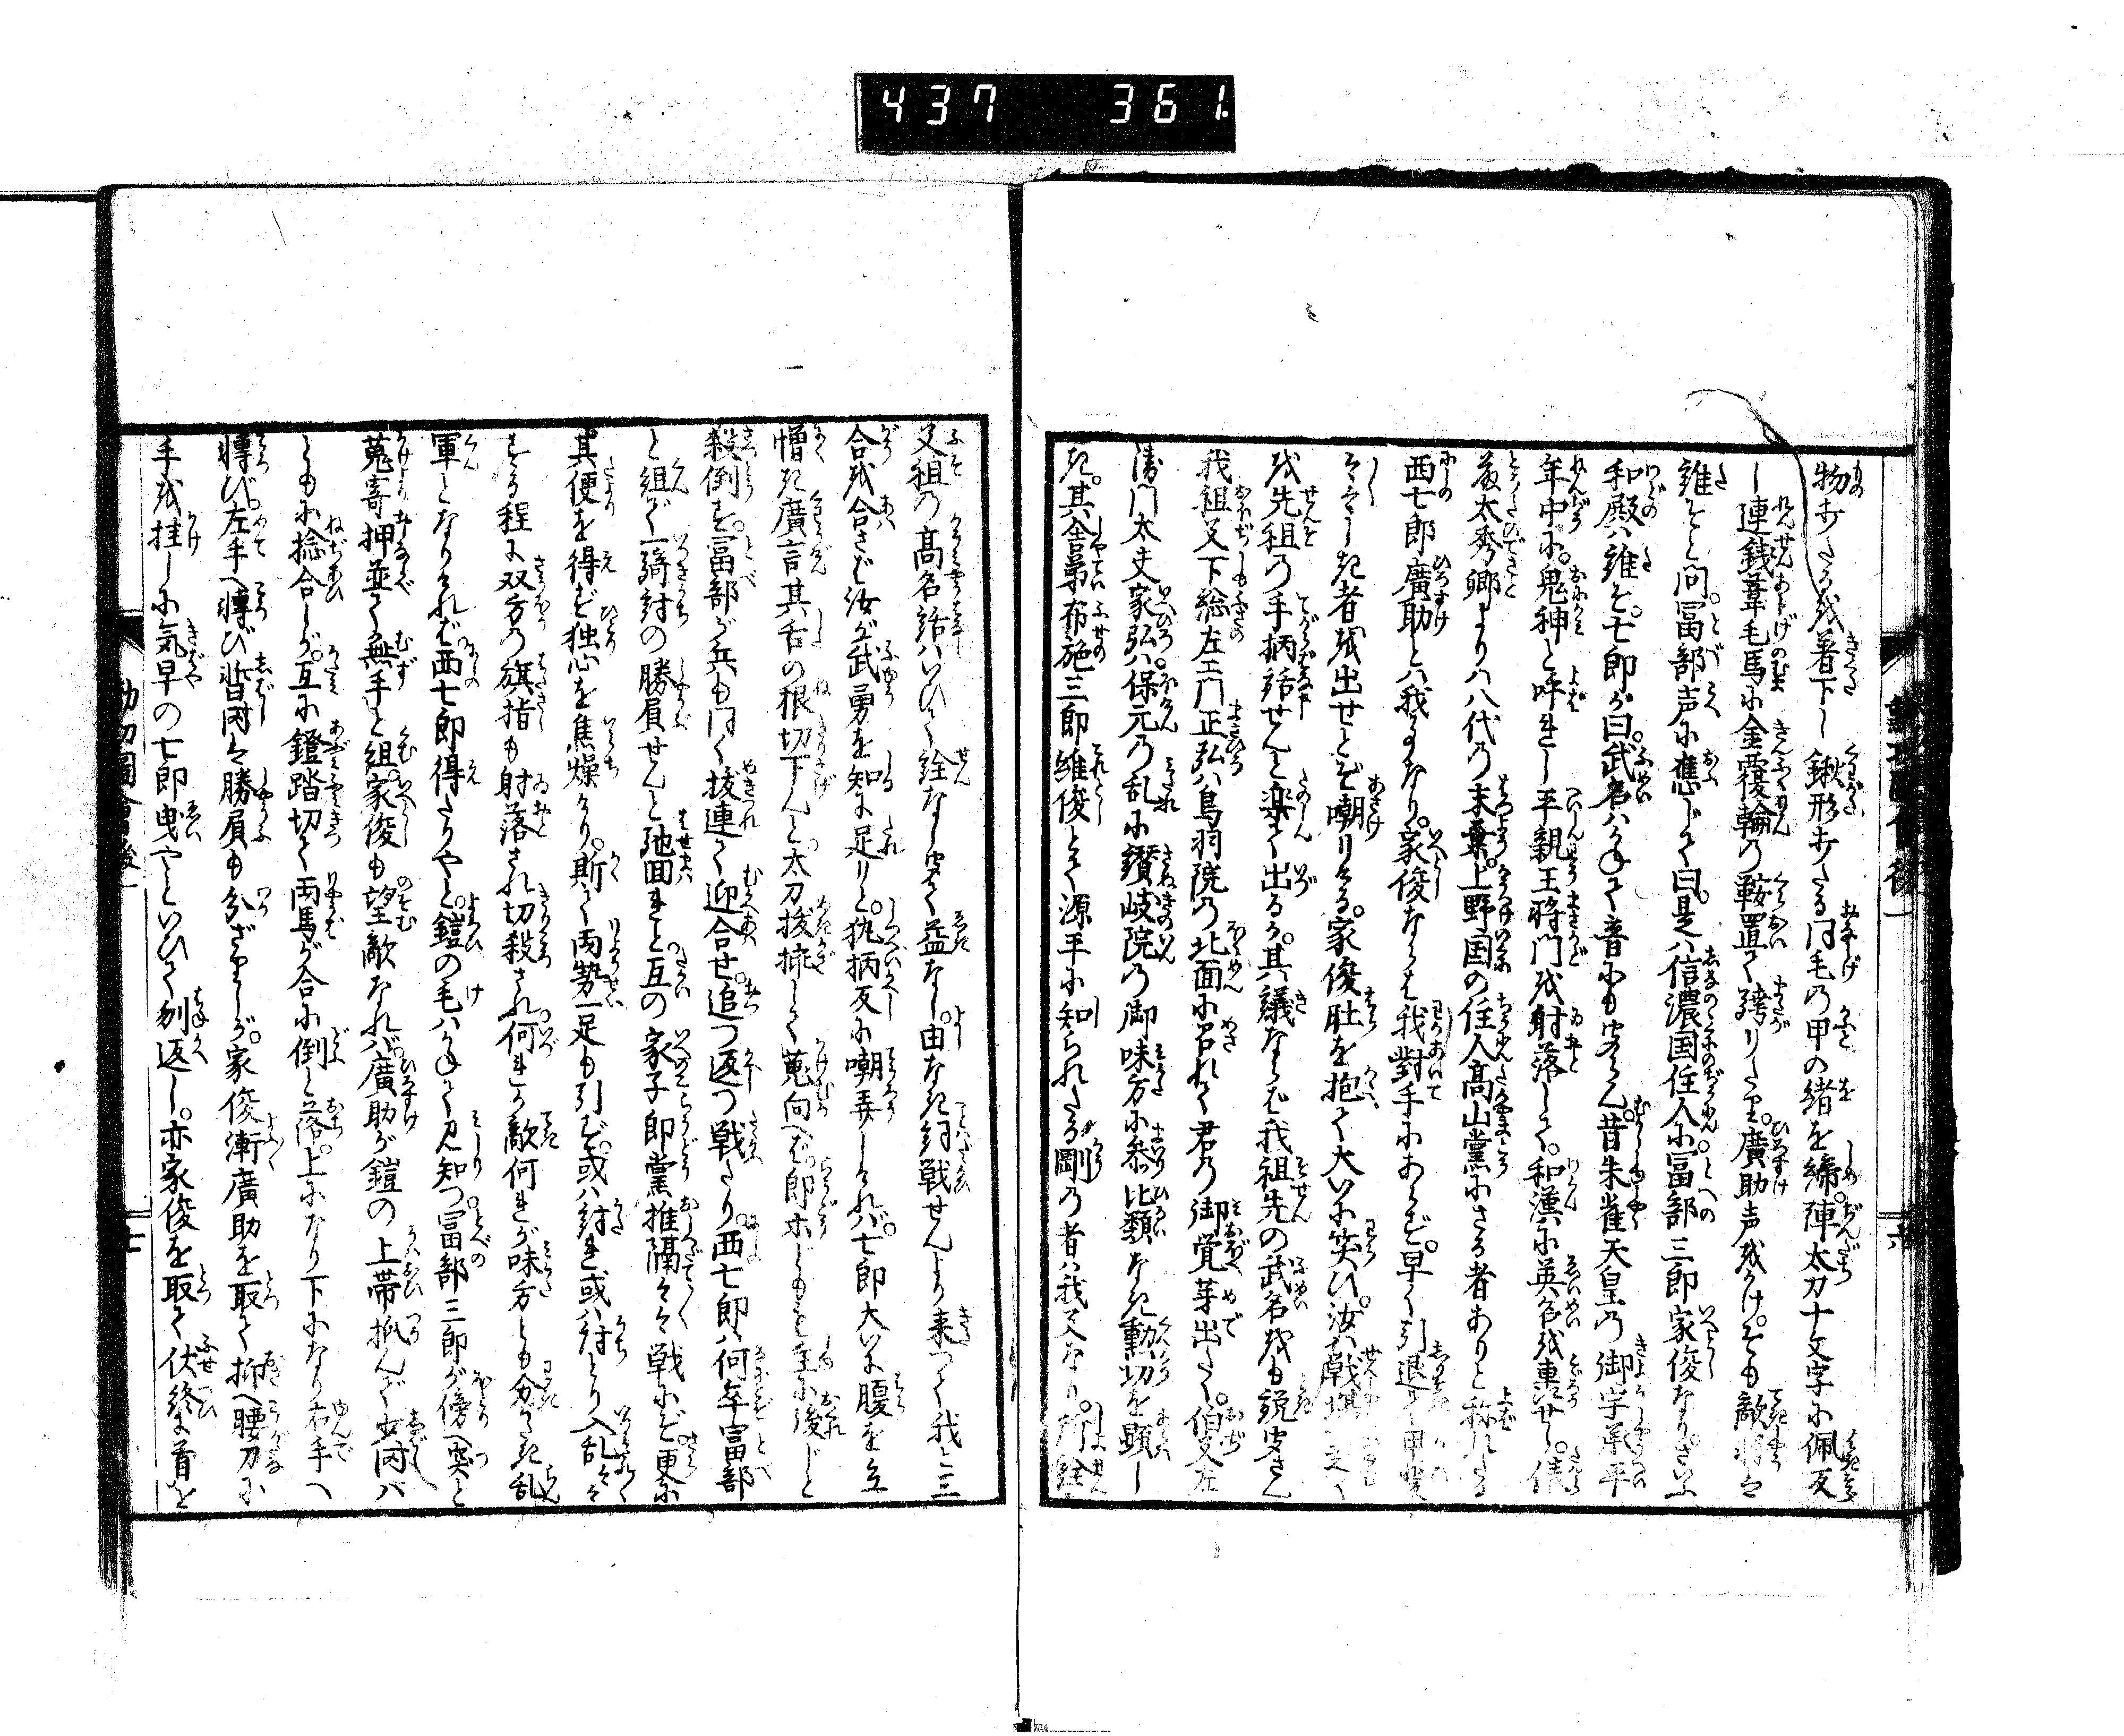 437 361.
物打たるを着下し鍬形打たる同毛の甲の緒を締。陣太刀十文字に佩反
し連銭葦毛馬に金覆輪の鞍置て跨りたり。廣助声をかけ。そも敵将は
誰ぞと問。冨部声に應じて曰。是ハ信濃国住人に冨部三郎家俊なり。さいふ
和殿ハ誰そ。七郎が曰。武名ハかねて音にも聞らん。昔朱雀天皇の御宇承平
年中に。鬼神と呼れし平親王将門を射落して。和漢に英名を東せし。俵
藤太秀郷よりハ八代の末葉。上野国の住人高山黨にさる者ありと称れたる
西七郎廣助とハ我事なり。家俊ならば我對手にあらず。早く引退て甲斐
〳〵しき者を出せとぞ嘲りける。家俊肚を抱て大いに笑ひ。汝ハ戯
を先祖の手柄話せんと楽て出るか。其議ならば我祖先の武名をも説聞さん
我祖父下総左エ門正弘ハ鳥羽院の北面に召れて君の御覚芽出たく。伯父左
衛門太夫家弘ハ保元の乱に讃岐院の御味方に参。比類なき勲功を顕し
き。其舎弟布施三郎維俊とて源平に知られたる剛の者ハ我父なり。所詮
父祖の高名話ハいひて詮なし聞て益なし。由なき詞戦せんより来つて我と三
合を合さば汝が武勇を知に足りと。執柄反に嘲弄しければ。七郎大いに腹を立
憎き廣言其舌の根切下んと。太刀抜挿して蒐向へば。郎ホどもも主に後じと
殺倒す。冨部が兵も同く抜連て迎合せ。追つ返つ戦たり。西七郎ハ何卒富部
と組で一騎討の勝負せんと馳回れど互の家子郎黨推隔々々戦にぞ更に
其便を得ず独心を焦燥けり。斯て両勢一足も引ず。或ハ討れ或ハ討とり入乱々々
する程に双方の旗指も射落され切殺され。何れか敵何れが味方とも分がたき乱
軍となりければ。西七郎得たりやと。鎧の毛ハかねて見知つ。冨部三郎が傍へ突と
蒐寄押並て無手と組。家俊も望敵なれバ。廣助が鎧の上帯抓んで少時ハ
ともに捻合しが。互に鐙踏切て両馬が合に倒と落。上になり下になり右手へ
轉び。左手へ轉び暫時は勝負も分ざりしが。家俊漸廣助を取て抑へ腰刀に
手を挂しに気早の七郎曳やといひて刎返し。亦家俊を取て伏終に首を